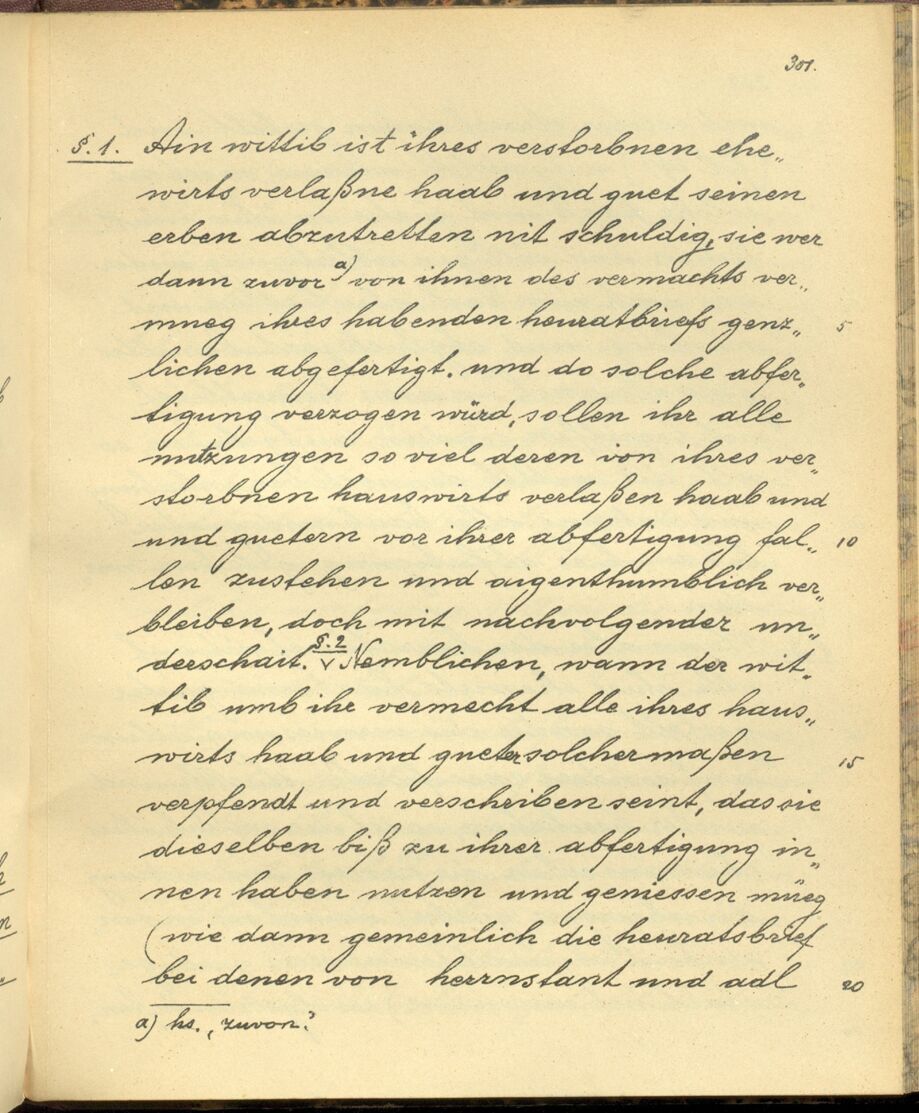 301.
§. 1. Ain wittib ist ihres verstorbnen ehe„
wirts verlaßne haab und guet seinen
erben abzutretten nit schuldig, sie wer
dann zuvor a) von ihnen des vermachts ver„
mueg ihres habenden heuratbriefs genz„ 5
lichen abgefertigt. und do solche abfer„
tigung verzogen würd, sollen ihr alle
nutzungen so viel deren von ihres ver„
storbnen hauswirts verlaßen haab und
und guetern vor ihrer abfertigung fal„ 10
len zustehen und aigenthumblich ver„
bleiben, doch mit nachvolgender un„
derschait. §. 2 Nemblichen, wann der wit„
tib umb ihr vermecht alle ihres haus„
wirts haab und gueter solchermaßen 15
verpfendt und verschriben seint, das sie
dieselben biß zu ihrer abfertigung in„
nen haben nutzen und geniessen müeg
(wie dann gemeinlich die heuratsbrief
bei denen von herrnstant und adl 20
a) hs. „zuvon".